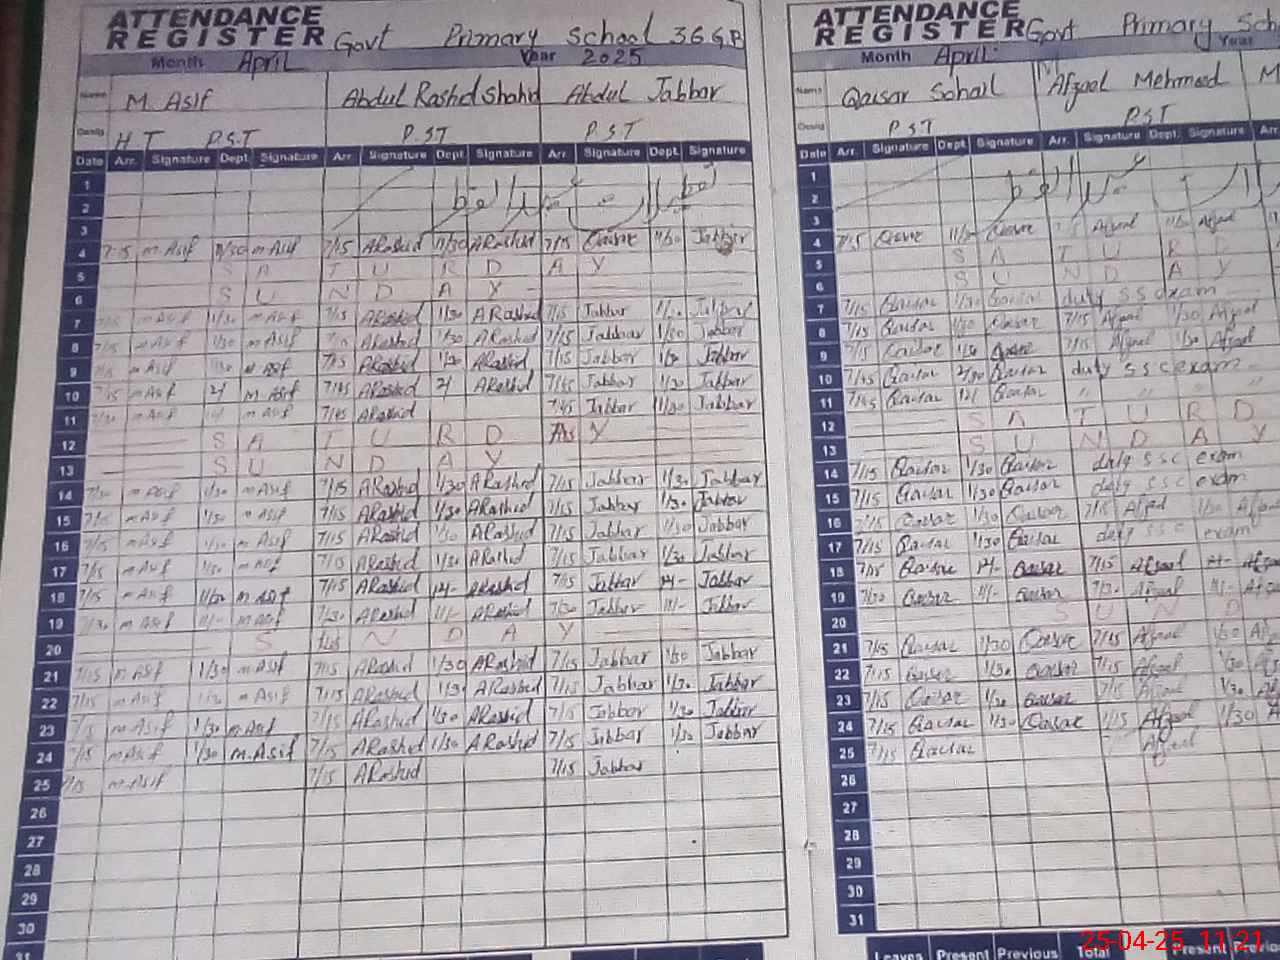 ATTENDANCE
REGISTER Govt Primary School 36 G.B
Month April Year 2025
Name M. Asif Abdul Rashid Shahid Abdul Jabbar
Desig H T P.S.T P.ST P.S.T
Date Arr. Signature Dept. Signature Arr. Signature Dept. Signature Arr. Signature Dept. Signature
1
2
3
4 7-15 m Asif 11/30 m Asif 7/15 ARashid 11/30 ARashid 7/15 11/30 Jabbar
5 S A T U R D A Y
6 S U N D A Y
7 m Asif 1/30 m Asif 7/15 ARashid 1/30 ARashid 7/15 Jabbar Jabbar
8 7/15 m Asif 1/30 m Asif ARashid 1/30 ARashid 7/15 Jabbar 1/30 Jabbar
9 7/15 m Asif m Asif 7/15 ARashid 1/30 ARashid 7/15 Jabbar Jabbar
10 7/15 m Asif 2/ m Asif 7/45 ARashid 2/ ARashid 7/45 Jabbar 1/30 Jabbar
11 m Asif m Asif 7/45 ARashid 7/45 Jabbar 11/30 Jabbar
12 S A T U R D A Y
13 S U N D A Y
14 7/30 m Asif 1/30 m Asif 7/15 ARashid 1/30 ARashid 7/15 Jabbar 1/30 Jabbar
15 7/15 m Asif 1/30 m Asif 7/15 ARashid 1/30 ARashid 7/15 Jabbar 1/30 Jabbar
16 7/15 m Asif 1/30 m Asif 7/15 ARashid 1/30 ARashid 7/15 Jabbar 1/30 Jabbar
17 7/15 m Asif 1/30 m Asif 7/15 ARashid 1/30 ARashid 7/15 Jabbar 1/30 Jabbar
18 7/15 m Asif 11/30 m Asif 7/15 ARashid 12/- ARashid 7/15 Jabbar 12/- Jabbar
19 7/30 m Asif 11/- m Asif 7/30 ARashid 11/- ARashid 7/30 Jabbar 11/- Jabbar
20 S N D A Y
21 7/15 m Asif 1/30 m Asif 7/15 ARashid 1/30 ARashid 7/15 Jabbar 1/30 Jabbar
22 7/15 m Asif m Asif 7/15 ARashid 1/30 ARashid 7/15 Jabbar 1/30 Jabbar
23 7/15 m Asif 1/30 m Asif 7/15 ARashid 1/30 ARashid 7/15 Jabbar 1/30 Jabbar
24 7/15 m Asif 1/30 m.Asif 7/15 ARashid 1/30 ARashid 7/15 Jabbar 1/30 Jabbar
25 7/15 m.Asif 7/15 ARashid 7/15 Jabbar
26
27
28
29
30
31
ATTENDANCE
REGISTER Govt Primary Sch
Month April Year
Name Qaisar Sohail Afzaal Mehmood M
Desig P.ST P.ST
Date Arr. Signature Dept. Signature Arr. Signature Dept. Signature Arr.
1
2
3
4 7/15 Afzaal Afzaal
5 S A T U R D
6 S U N D A Y
7 7/15 Qaisar 1/30 Qaisar duty s s c exam
8 7/15 Qaisar 1/30 Qaisar 7/15 Afzaal 1/30 Afzaal
9 7/15 Qaisar 1/30 Qaisar 7/15 Afzaal 1/30 Afzaal
10 7/45 Qaisar Qaisar duty s s c exam
11 7/45 Qaisar 12/ Qaisar " " "
12 S A T U R D
13 S U N D A Y
14 7/15 Qaisar 1/30 Qaisar duty s s c exam
15 7/15 Qaisar 1/30 Qaisar duty s s c exam
16 7/15 Qaisar 1/30 Qaisar 7/15 Afzaal 1/30
17 7/15 Qaisar 1/30 Qaisar duty s s c exam
18 7/15 Qaisar 12/- Qaisar 7/15 Afzaal 12/-
19 7/30 Qaisar 11/- Qaisar 7/30 Afzaal 11/-
20 S U N D
21 7/15 Qaisar 1/30 Qaisar 7/15 Afzaal 1/30
22 7/15 Qaisar 1/30 Qaisar 7/15 Afzaal 1/30
23 7/15 Qaisar 1/30 Qaisar 7/15 Afzaal 1/30
24 7/15 Qaisar 1/30 Qaisar 7/15 Afzaal 1/30
25 7/15 Qaisar Afzaal
26
27
28
29
30
31
Leaves Present Previous Total Present Previous
25-04-25 11:21